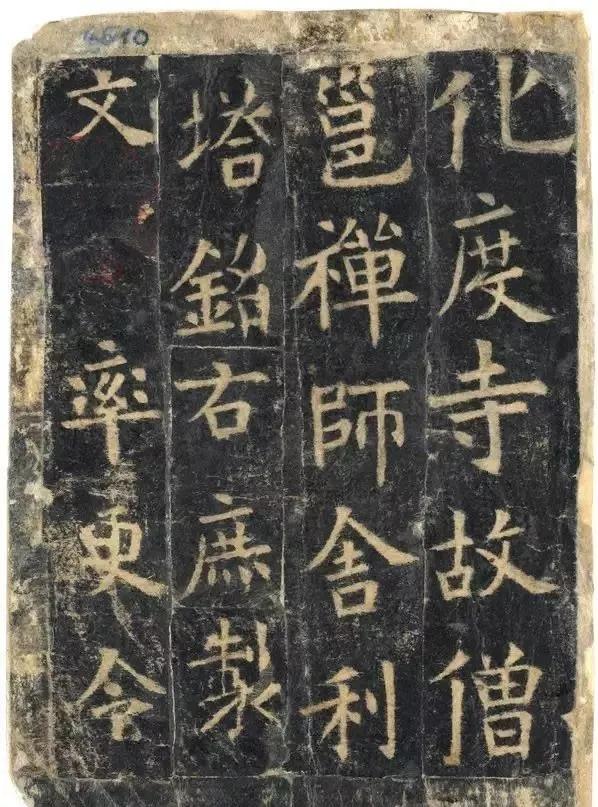 化度寺故僧
邕禪師舍利
塔銘右庶製
文 率更令
4510